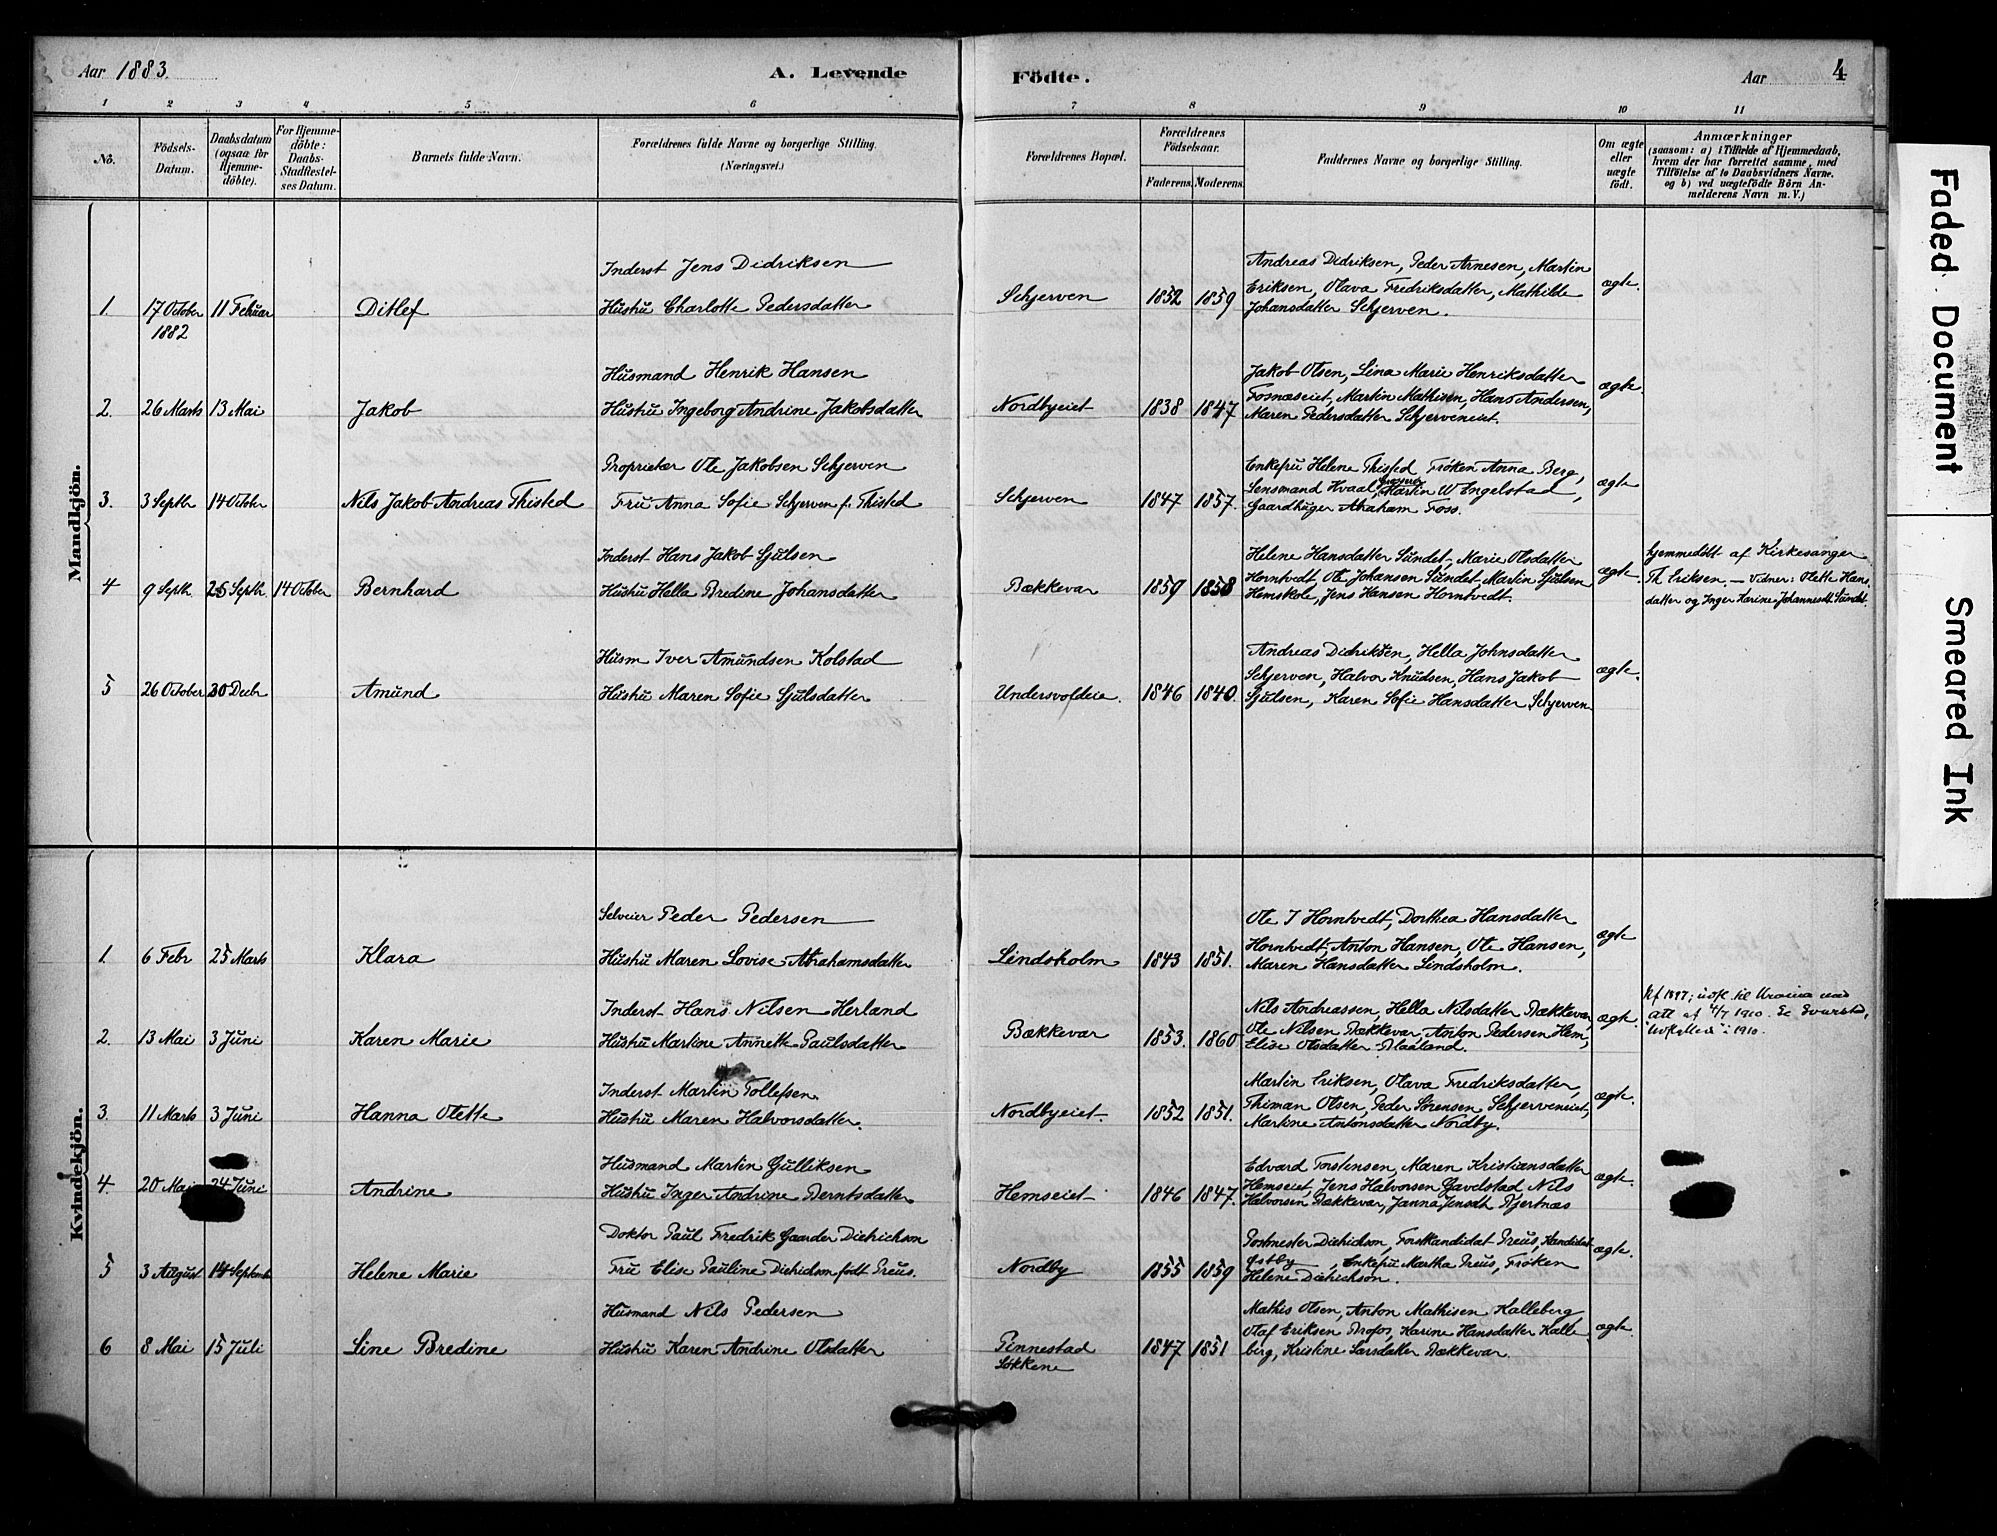 Aar 1883.
A. Levende Födte.
Aar 4
1 2 3 4 5 6 7 8 9 10 11
No.
Födsels-Datum.
Daabsdatum (ogsaa for Hjemme-döbte).
For Hjemme-döbte: Daabs-Stadfestel-ses Datum.
Barnets fulde Navn.
Forældrenes fulde Navne og borgerlige Stilling. (Næringsvei.)
Forældrenes Bopæl.
Forældrenes Födselsaar.
Faderens. Moderens.
Faddernes Navne og borgerlige Stilling.
Om ægte eller uægte födt.
Anmærkninger
(saasom: a) i Tilfælde af Hjemmedaab,
hvem der har forrettet samme, med
Tilföielse af to Daabsvidners Navne.
og b) ved uægtefödte Börn An-
melderens Navn m. V.)
Mandkjön.
Inderst Jens Didriksen
1. 17 October 1882 11 Februar Ditlef
Hustru Charlotte Pedersdatter
Schjerven 1852 1859
Andreas Didriksen, Peder Arnesen, Martin
Eriksen, Olava Fredriksdatter, Mathilde
Johansdatter Schjerven.
ægte.
Husmand Henrik Hansen
2. 26 Marts 13 Mai Jakob
Hustru Ingeborg Andrine Jakobsdatter
Nordbyeiet 1838 1847
Jakob Olsen, Lina Marie Henriksdatter
Fosnaseiet, Martin Mathisen, Hans Andersen,
Maren Pedersdatter Schjerveneiet.
ægte.
Proprietær Ole Jakobsen Schjerven
3. 3 Septbr 14 October Nils Jakob Andreas Thisted
Fru Anna Sofie Schjerven f. Thisted
Schjerven 1847 1857.
Enkefru Helene Thisted Frøken Anna Berg,
Lensmand Hvaal, Martin W Engelstad,
Gaardbruger Abraham Foss.
ægte
Inderst Hans Jakob Sjulsen
4 9 Septbr. 25 Septbr. 14 October Bernhard
Hustru Hella Bredine Johansdatter
Bækkevar 1859 1858
Helene Hansdatter Sundet, Marie Olsdatter
Horntvedt, Ole Johansen Sundet, Martin Sjulsen
Hemskole, Jens Hansen Horntvedt.
ægte.
hjemmedøbt af Kirkesanger
Th. Eriksen. — Vidner: Olette Hans
datter og Inger Karine Johannesdt. Sundet.
Husm Iver Amundsen Kolstad
5 26 October 30 Decbr Amund
Hustru Maren Sofie Sjulsdatter
Undersvoldeie. 1846 1840.
Andreas Didriksen, Hella Johnsdatter
Schjerven, Halvor Knudsen, Hans Jakob
Sjulsen, Karen Sofie Hansdatter Schjerven
ægte.
Kvindekjön.
Selveier Peder Pedersen
1. 6 Febr 25 Marts Klara
Hustru Maren Lovise Abrahamsdatter
Lindsholm 1843 1851.
Ole J Horntvedt, Dorthea Hansdatter
Horntvedt, Anton Hansen, Ole Hansen,
Maren Hansdatter Lindsholm.
ægte
Inderst Hans Nilsen Herland
2. 13 Mai 3 Juni Karen Marie
Hustru Martine Annette Paulsdatter
Bækkevar 1853. 1860
Nils Andreassen, Hella Nilsdatter Bækkevar,
Ole Nilsen Bækkevar, Anton Pedersen Hem,
Elise Olsdatter Blaaland.
ægte.
Kf 1897; udfl. til
Att af 4/7 1910. Se
"Udflytted" i 1910.
Inderst Martin Tollefsen
3. 11 Marts 3 Juni Hanna Olette
Hustru Maren Halvorsdatter.
Nordbyeiet 1852 1851.
Martin Eriksen, Olava Fredriksdatter,
Thiman Olsen, Peder Sørensen Schjerveneiet,
Martine Antonsdatter Nordby.
ægte.
Husmand Martin Gulliksen
4. 20 Mai 24 Juni Andrine
Hustru Inger Andrine Berntsdatter
Hemseiet 1846 1847.
Edvard Torstensen, Maren Kristiansdatter
Hemseiet, Jens Halvorsen Gavelstad, Nils
Halvorsen Bækkevar, Janna Jensdt Bjertnæs
ægte.
Doktor Paul Fredrik Gaarder Dietrichson
5 3 August 14 Septembr Helene Marie
Fru Elise Pauline Dietrichson født Preus.
Nordby 1855 1859
Postmester Dietrichson, Forstkandidat Preus, Kandidat
Østby, Enkefru Martha Preus, Frøken
Helene Dietrichson.
ægte.
Husmand Nils Pedersen
6 8 Mai 15 Juli Line Bredine
Hustru Karen Andrine Olsdatter
Pinnestad
Løkkene
1847 1851
Mathis Olsen, Anton Mathisen Kalleberg
Olaf Eriksen Brofos, Karine Hansdatter Kalle
berg, Kristine Larsdatter Bækkevar.
ægte.
Faded Document
Smeared Ink